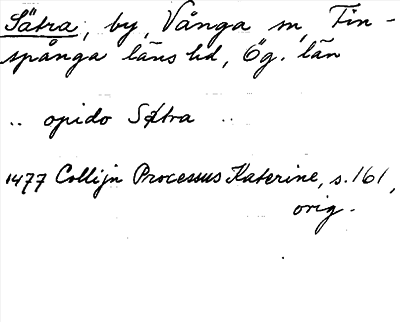 Sätra, by, Vånga sn, Fin-
spånga läns hd, Ög. län
.. opido Søtra ..
1477 Collijn Processus Katerine, s. 161,
orig.